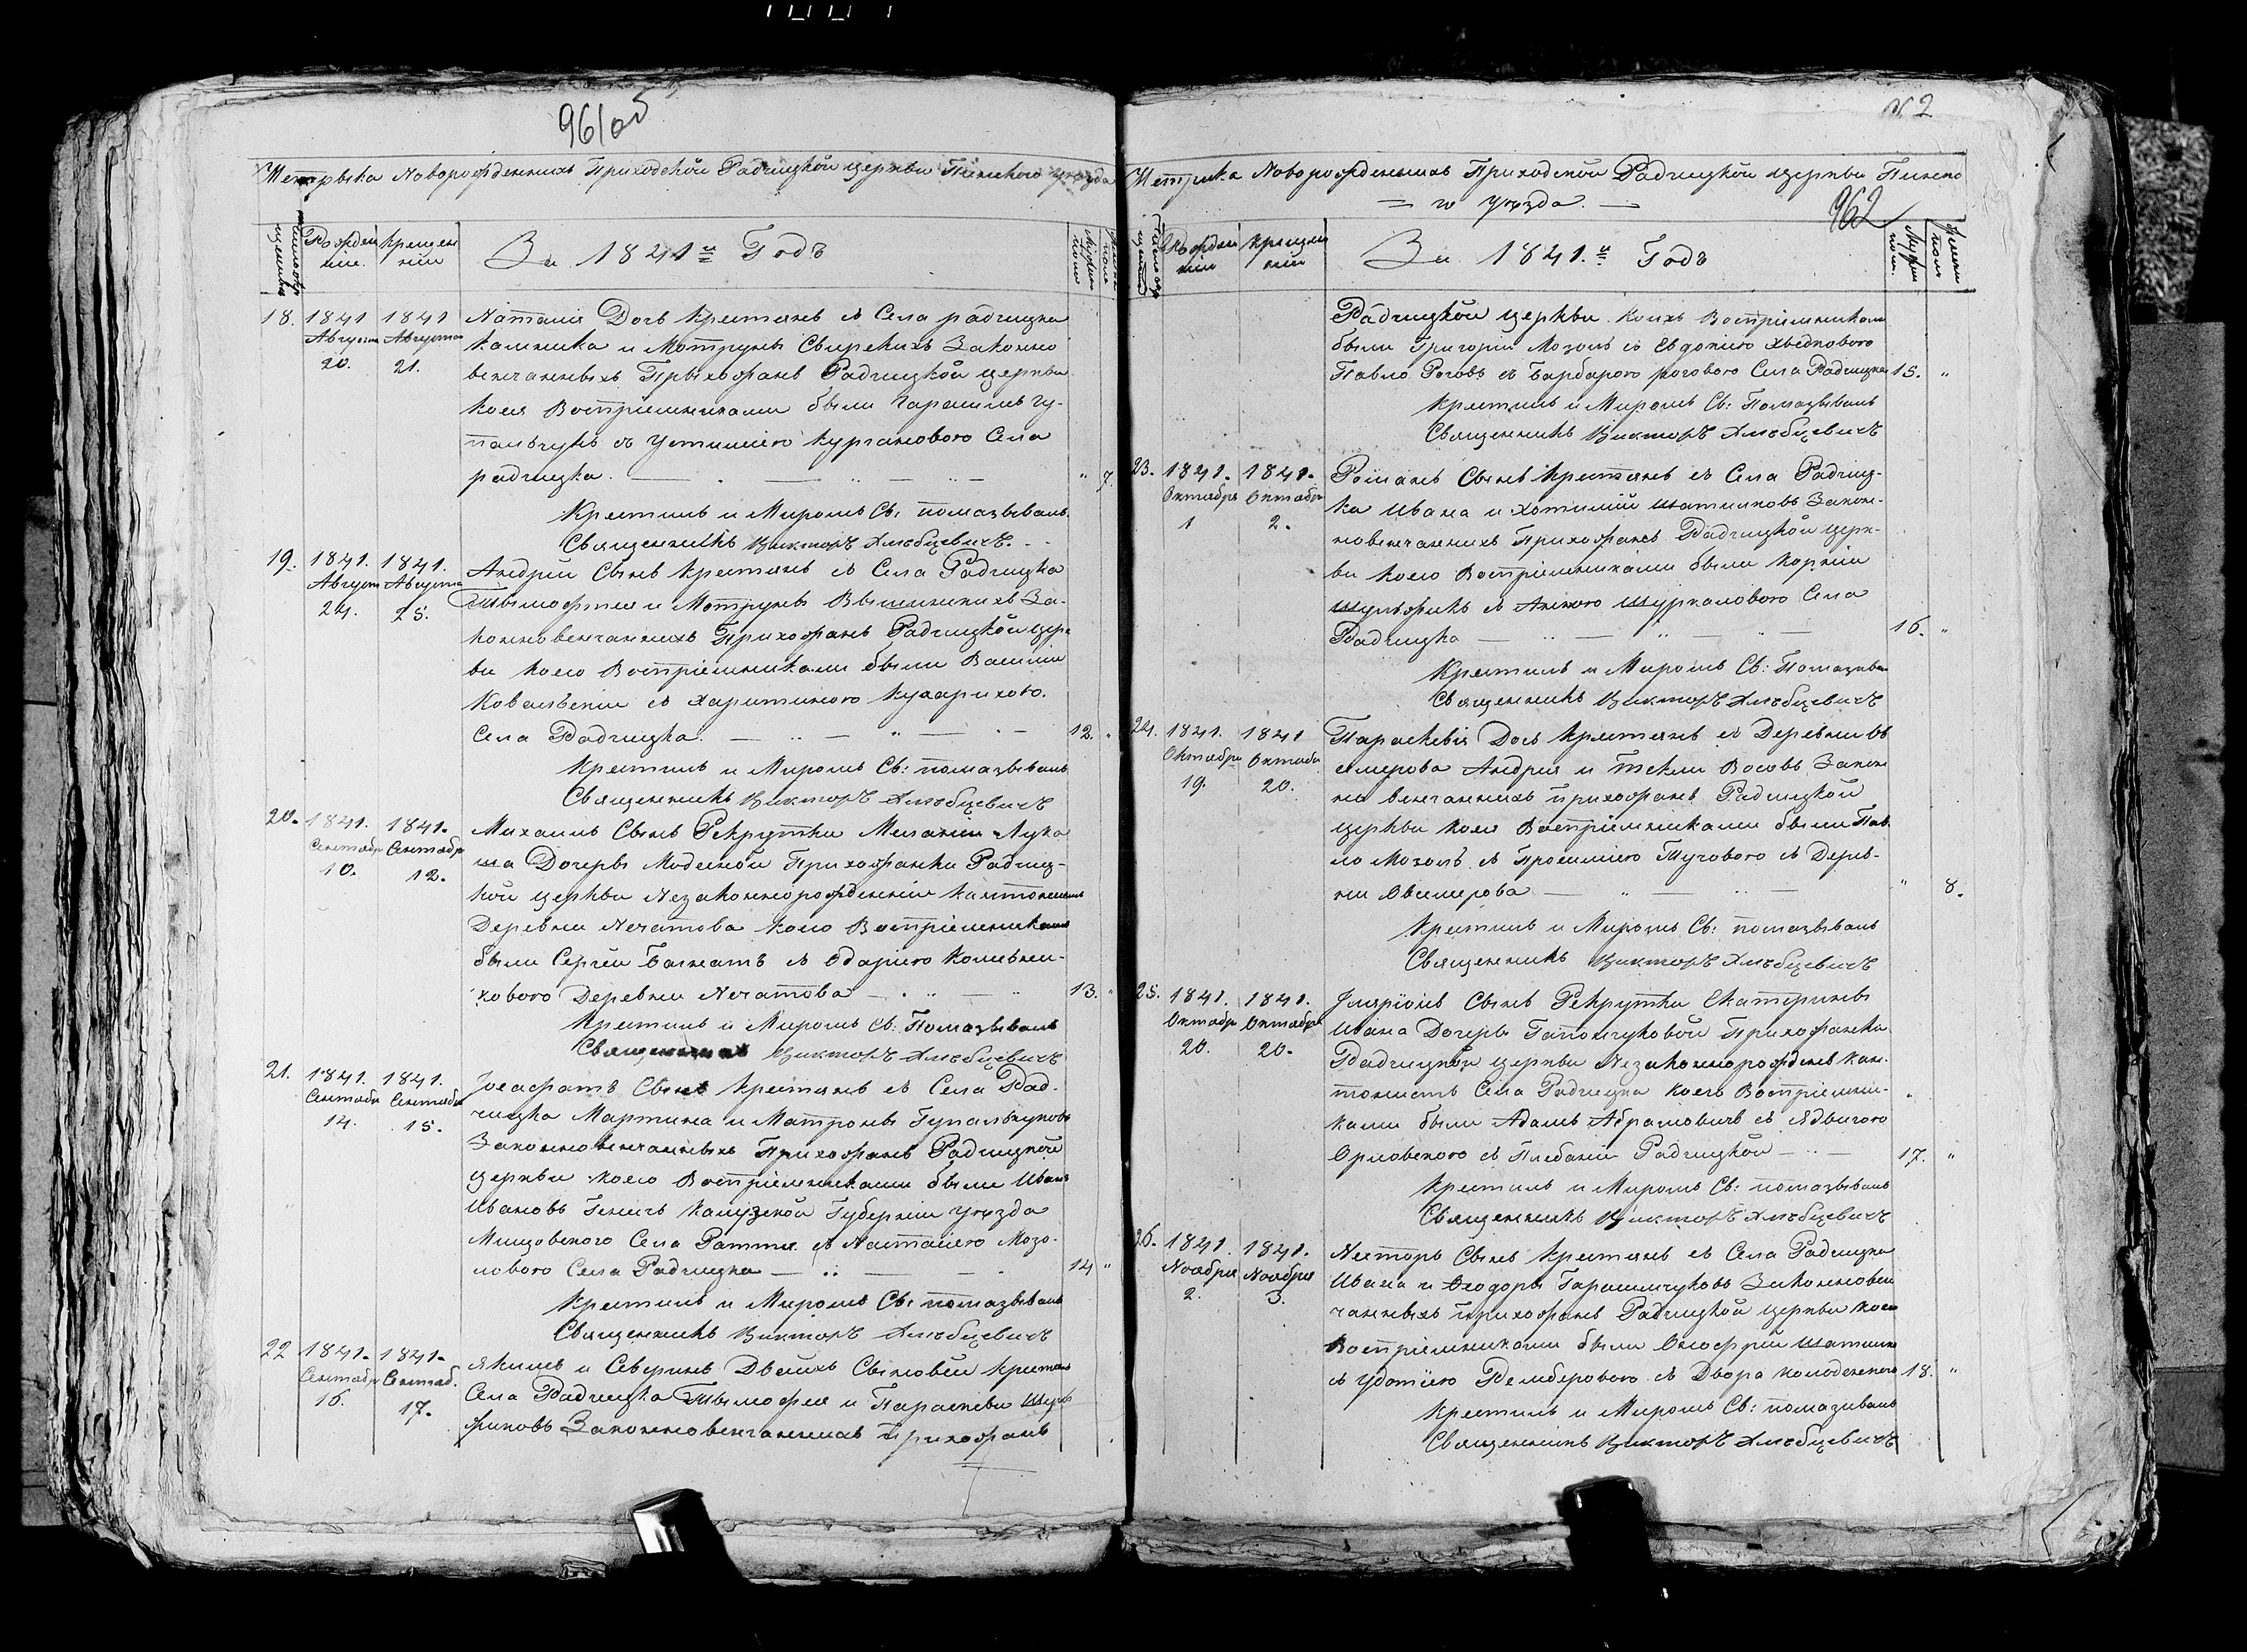 961об
Метрыка Новорожденныхъ Приходской Радчицкой церкви Пинского уѣзда
Рожден
нія
крещен
нія
За 1841й Годъ
18. 1841 Августа 20. 1841 Августа 21. Наталія Дочь крестянъ съ Села радчицка
калиника и Мотруны Свирскихъ Законно
венчанныхъ Прыхожанъ Радчицкой церкви
коея Воспріемниками были Гарасимъ Гу-
пальчукъ съ Устиниею кургановою Села
радчицка. " 7
Крестилъ и Миромъ Св: помазывалъ
Священникъ Викторъ Хлѣбцевичъ.
19. 1841. Августа 24. 1841. Августа 25. Андрей Сынъ крестянъ съ Села Радчицка
Тымофтея и Мотруны Вышинскихъ За-
конновенчанныхъ Прихожанъ Радчицкой церк
ви коего Воспріемниками были Василій
Ковалевіи съ Харитиною Кухариковою.
Села Радчицка. 12. "
Крестилъ и Миромъ Св: помазывалъ
Священникъ Викторъ Хлѣбцевичъ
20. 1841. Сентябр 10. 1841. Сентябр 12. Михаилъ Сынъ Рекрутки Миланіи Лука
ша Дочеры Модейкой Прихожанки Радчиц-
кой церкви Незаконнорожденній кантонистъ
Деревни Нечатова коего Воспріемниками
были Сергей Багнатъ съ Одарією
ковою Деревни Нечатова 13. "
Крестилъ и Миромъ Св: Помазывалъ
Священникъ Викторъ Хлѣбцевичъ
21. 1841. Сентябр 14. 1841. Сентября 15. Іосафатъ Сынъ крестянъ съ Села Рад-
чицка Мартина и Матроны Гупальчуковъ
Законновенчанныхъ Прихожанъ Радчицкой
церкви коего Воспріемниками были Иванъ
Ивановъ Геничъ Калузской Губерніи уѣзда
Мищовского Села Ратти съ Настасіею Мозо-
левою Села Радчицка 14 "
Крестилъ и Миромъ Св: помазывалъ
Священникъ Викторъ Хлѣбцевичъ
22 1841. Сентябр 16. 1841. Сентяб. 17. Якимъ и Северинъ Двоихъ Сыновей крестянъ
Села Радчицка Тымофея и Параскеви Шуль
жиковъ Законновенчанныхъ Прихожанъ
962
Метрика Новорожденныхъ Приходской Радчицкой церкви Пинско
= го уѣзда. =
962
Рожден
нія
крещен
нія
За 1841.й Годъ
Радчицкой церкви. коихъ Воспріемниками
были Григорій Мозоль съ Евдокиею Хведковою
Павло Роговъ съ Барбарою роговою Села Радчицка 15. "
крестилъ и Миромъ Св: Помазывалъ
Священникъ Викторъ Хлѣбцевичъ
23. 1841. Октября 1 1841. Октября 2. Романъ Сынъ крестянъ съ Села Радчиц-
ка Ивана и Хотиміи Шатиковъ Закон-
новенчанныхъ Прихожанъ Радчицкой церк-
ви коего Воспріемниками были Корній
Шульжикъ съ Анною Шуркаловою Села
Радчицка 16. "
Крестилъ и Миромъ Св: Помазывал
Священникъ Викторъ Хлѣбцевичъ
24. 1841. Октября 19. 1841 Октября 20. Параскевія Дочь крестянъ съ Деревни Ов
семерова Андрея и Теклы Восовъ Закон
но венчанныхъ прихожанъ Радчицкой
церкви коея Воспріемниками были Пав
ло Мозоль съ Тучовою съ Дерев-
ни Овсимерова " 8.
Крестилъ и Миромъ Св: помазывалъ
Священникъ Викторъ Хлѣбцевичъ
25. 1841. Октября 20. 1841. Октября 20. Іляріонъ Сынъ Рекрутки Екатерины
Ивана Дочеры Гапончуковой Прихожанки
Радчицкой церкви Незаконнорожденъ кан-
тонистъ Села Радчицка коего Воспріемни-
ками были Адамъ Абрамовичъ съ Ядвигою
Орловскою съ Плебаніи Радчицкой 17. "
Крестилъ и Миромъ Св: помазывалъ
Священникъ Викторъ Хлѣбцевичъ
26. 1841. Ноября 2. 1841. Ноября 3. Нестеръ Сынъ крестянъ съ Села Радчицка
Ивана и Ѳеодоры Гарасимчуковъ Законновен
чанныхъ прихожанъ Радчицкой церкви коего
Воспріемниками были Онофрій Шатикъ
съ Деліберовою съ Двора колоденского 18. "
Крестилъ и Миромъ Св: помазивалъ
Священникъ Викторъ Хлѣбцевичъ